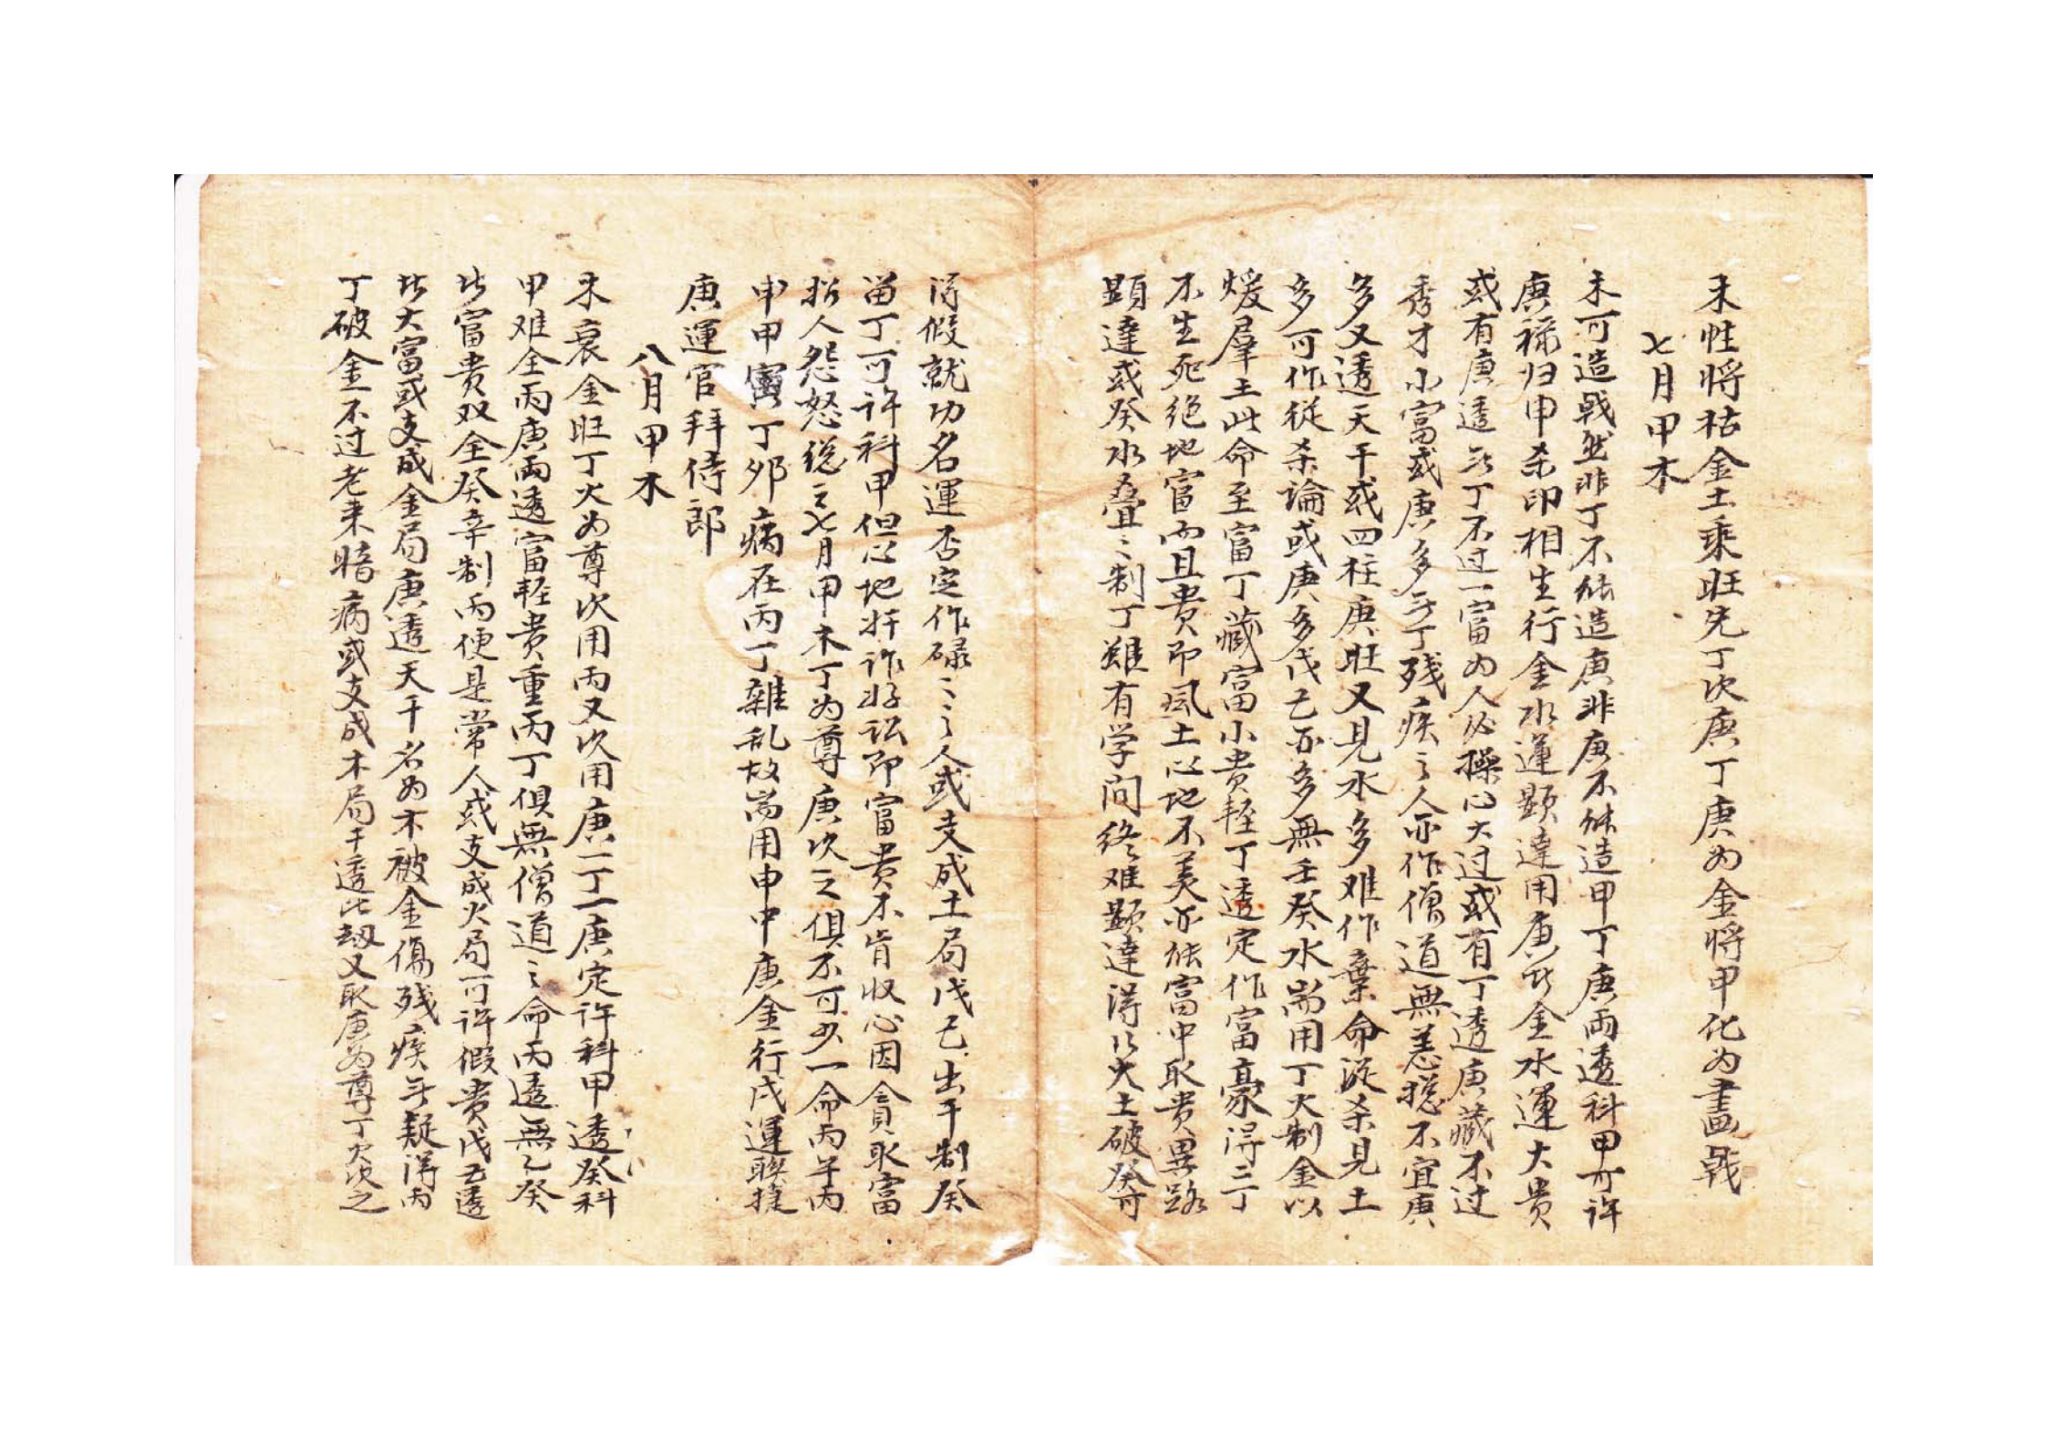 木性将枯金土乘旺先丁次庚丁庚为金将甲化为畫戟
七月甲木
木可造戟然非丁不能造庚非庚不能造甲丁庚両透科甲可许
庚禄归申杀印相生行金水運顯達用庚此金水運大贵
或有庚透无丁不过一富为人必操心大过或有丁透庚藏不过
秀才小富或庚多无丁残疾之人亦作僧道無恙揔不宜庚
多又透天干或四柱庚旺又見水多难作棄命從杀見土
多可作從杀論或庚多戊己亦多無壬癸水耑用丁火制金以
煖羣土此命至富丁藏富小贵輕丁透定作富豪淂二丁
不生死绝地富而且贵即風土心地不美亦能富中取贵異路
顯達或癸水叠〻制丁雖有学问终难顯達淂以大土破癸可
淂假就功名運否定作碌〻之人或支成土局戊己出干制癸
畄丁可许科甲但心地奸诈好訟即富贵不肯收心因貪取富
招人怨怒総之七月甲木丁为尊庚次之俱不可少一命丙午丙
申甲寅丁夘病在丙丁雜乱故耑用申中庚金行戌運聯捷
庚運官拜侍郎
八月甲木
木衰金旺丁火为尊次用丙又次用庚一丁一庚定许科甲透癸科
甲难全丙庚両透富輕貴重丙丁俱無僧道之命丙透無乙癸
此富貴双全癸辛制丙便是常人或支成火局可许假贵戊己透
此大富或支成金局庚透天干名为木被金傷残疾无疑淂丙
丁破金不过老来暗病或支成木局干透比劫又取庚为尊丁火次之